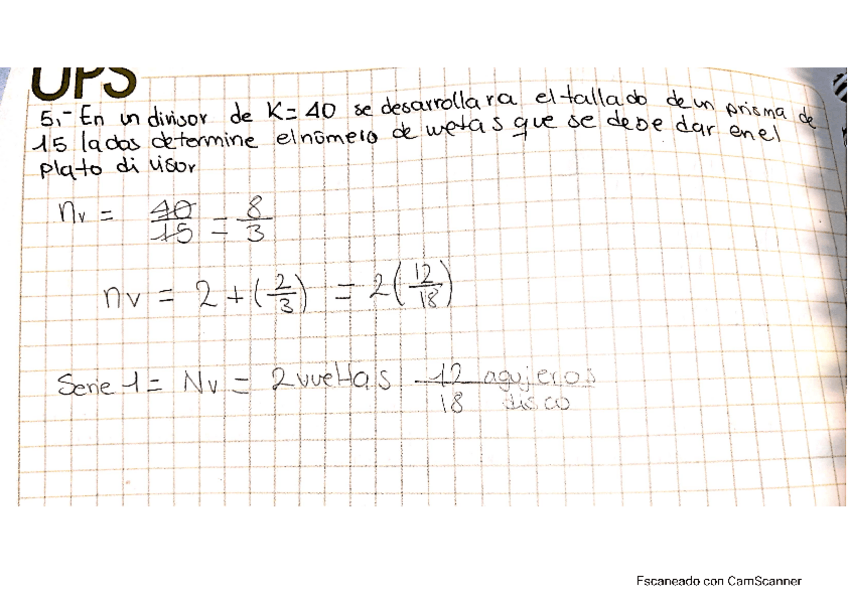 UPS
5.- En un divisor de K= 40 se desarrollara el tallado de un prisma de
15 lados determine el número de vueltas que se debe dar en el
plato di visor
nv = 40/15 = 8/3
nv = 2 + (2/3) = 2(12/18)
Serie 1 = Nv = 2 vueltas 12 agujeros / 18 disco
Escaneado con CamScanner